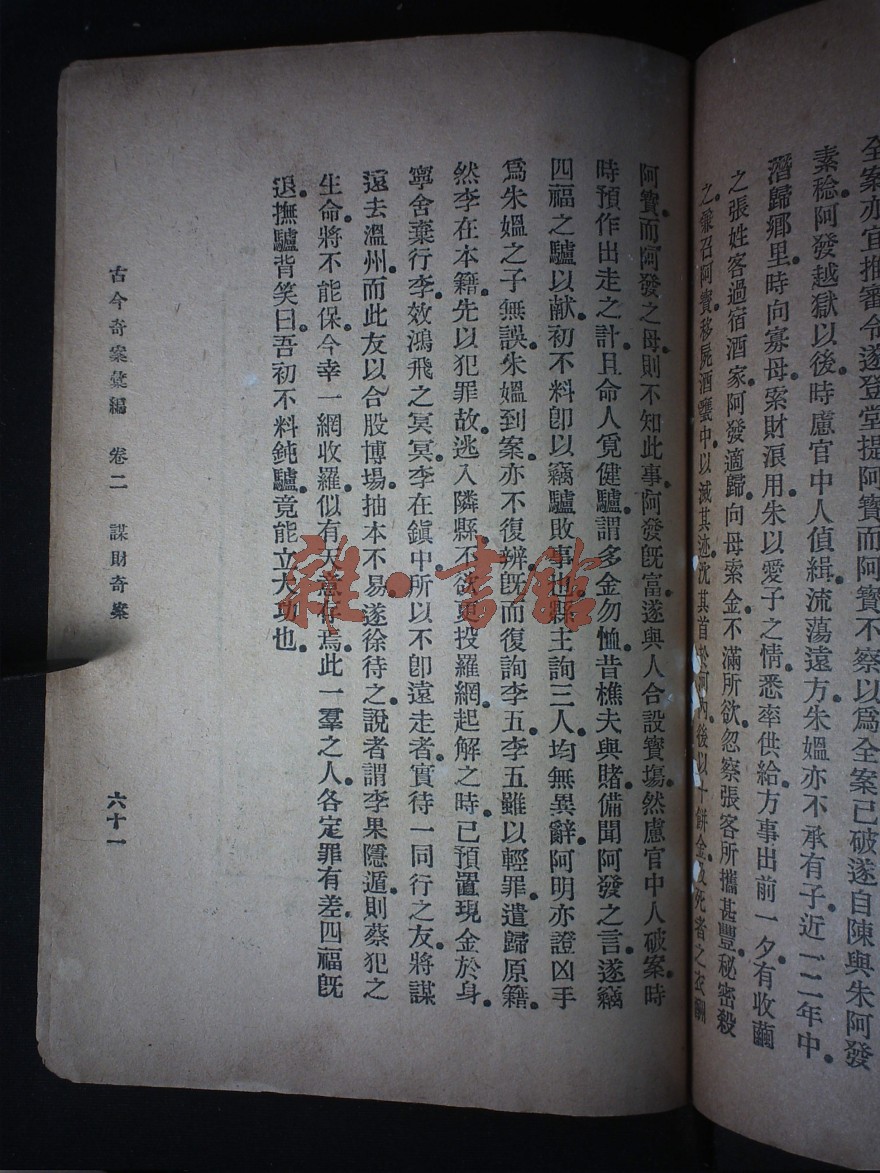 全案亦宜推審令遂登堂提阿寶而阿寶不察以爲全案已破遂自陳與朱阿發
素稔阿發越獄以後時慮官中人偵緝流蕩遠方朱媼亦不承有子近一二年中
潛歸鄉里時向寡母索財浪用朱以愛子之情悉率供給方事出前一夕有收繭
之張姓客過宿酒家阿發適歸向母索金不滿所欲忽察張客所攜甚豐秘密殺
之兼召阿寶移屍酒甕中以滅其迹沈其首於河內後以十餅金及死者之衣酬
阿寶而阿發之母則不知此事阿發旣富遂與人合設寶塲然慮官中人破案時
時預作出走之計且命人覓健驢謂多金勿恤昔樵夫與賭備聞阿發之言遂竊
四福之驢以献初不料卽以竊驢敗事也縣主詢三人均無異辭阿明亦證凶手
爲朱媼之子無誤朱媼到案亦不復辨旣而復詢李五李五雖以輕罪遣歸原籍
然李在本籍先以犯罪故逃入隣縣不欲更投羅網起解之時已預置現金於身
寧舍棄行李效鴻飛之冥冥李在鎭中所以不卽遠走者實待一同行之友將謀
遠去溫州而此友以合股博場抽本不易遂徐待之說者謂李果隱遁則蔡犯之
生命將不能保今幸一網收羅似有天意存焉此一羣之人各定罪有差四福旣
退撫驢背笑曰吾初不料鈍驢竟能立大功也
古今奇案彙編 卷二 謀財奇案 六十一
雜·書館